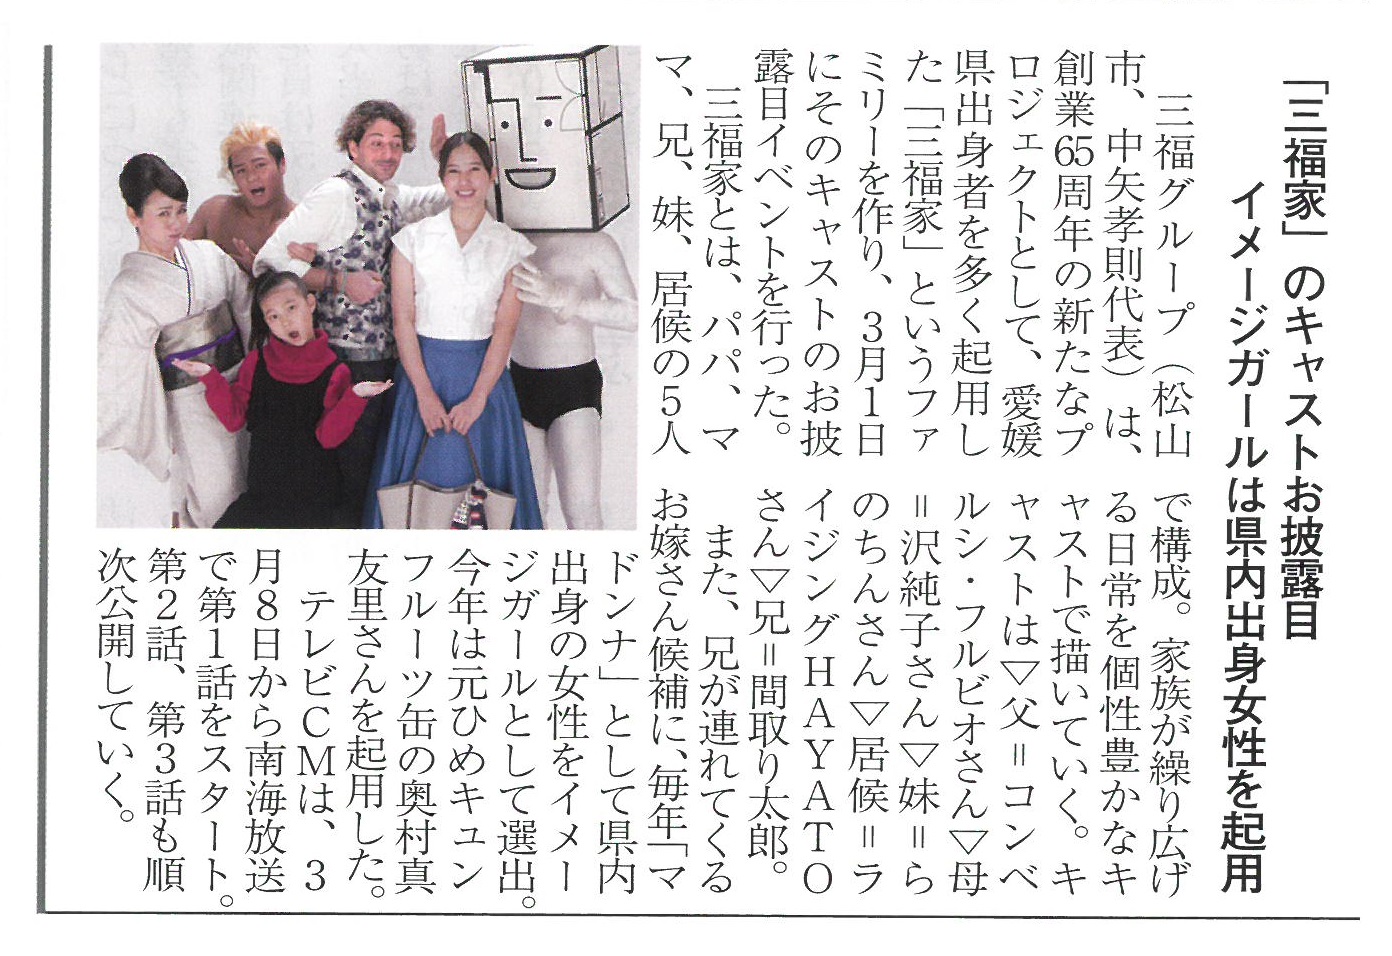 「三福家」のキャストお披露目
イメージガールは県内出身女性を起用
三福グループ（松山
市、中矢孝則代表）は、
創業65周年の新たなプ
ロジェクトとして、愛媛
県出身者を多く起用し
た「三福家」というファ
ミリーを作り、3月1日
にそのキャストのお披
露目イベントを行った。
三福家とは、パパ、マ
マ、兄、妹、居候の5人
で構成。家族が繰り広げ
る日常を個性豊かなキ
ャストで描いていく。キ
ャストは▽父＝コンベ
ルシ・フルビオさん▽母
＝沢純子さん▽妹＝ら
のちんさん▽居候＝ラ
イジングHAYATO
さん▽兄＝間取り太郎。
また、兄が連れてくる
お嫁さん候補に、毎年「マ
ドンナ」として県内
出身の女性をイメー
ジガールとして選出。
今年は元ひめキュン
フルーツ缶の奥村真
友里さんを起用した。
テレビCMは、3
月8日から南海放送
で第1話をスタート。
第2話、第3話も順
次公開していく。